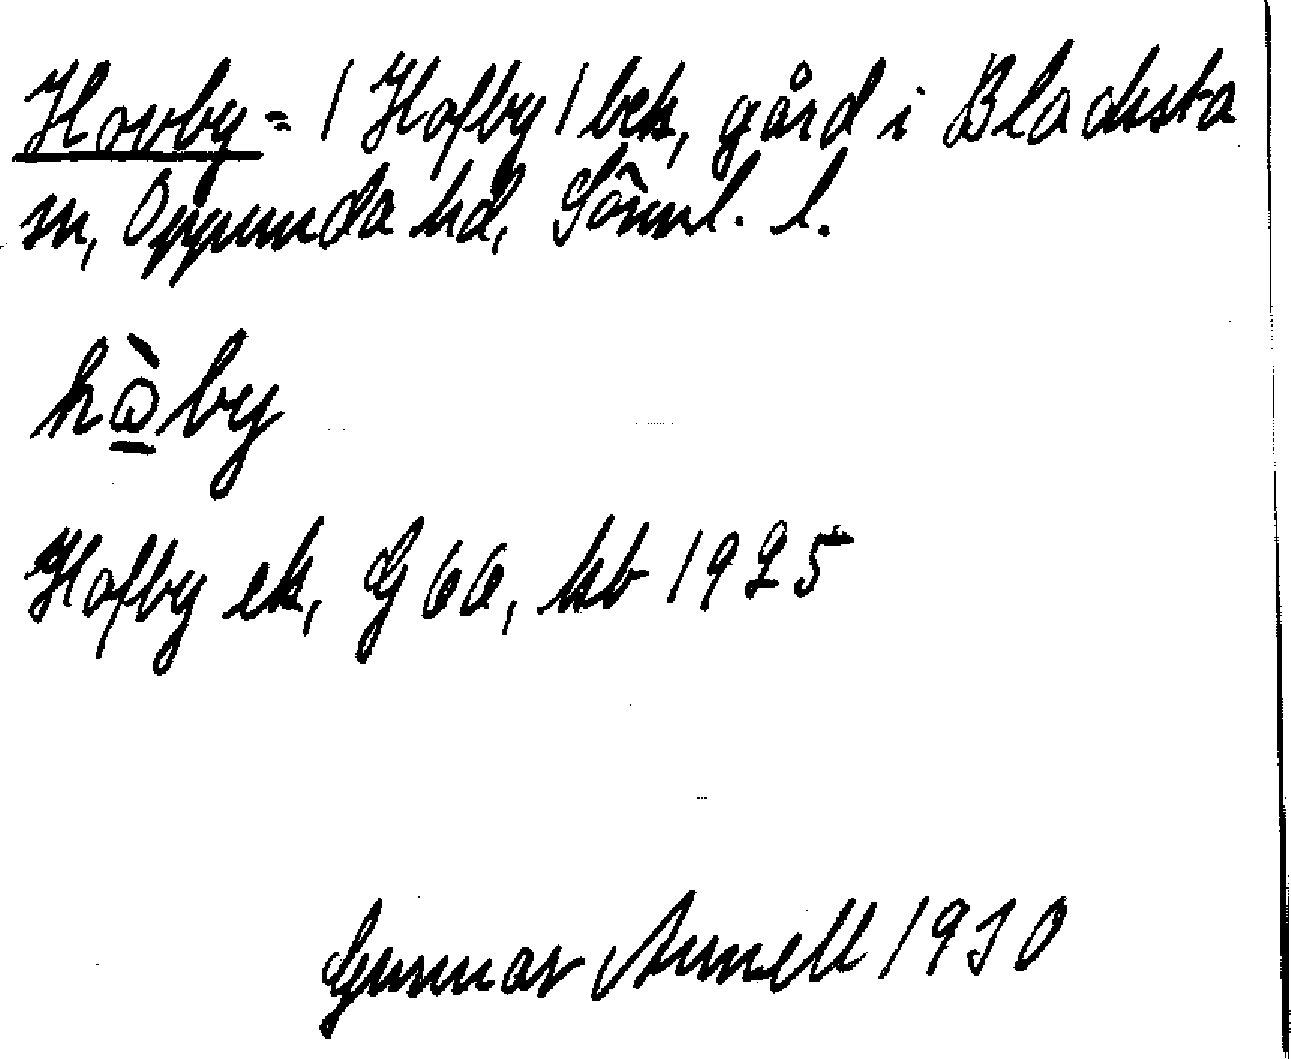 Hovby = / Hofby / bek, gård i Blacksta
sn, Oppunda hd, Sörml. l.
hὼ̲by
Hofby ek, G 66, kb 1925
Gunnar Arnell 1930